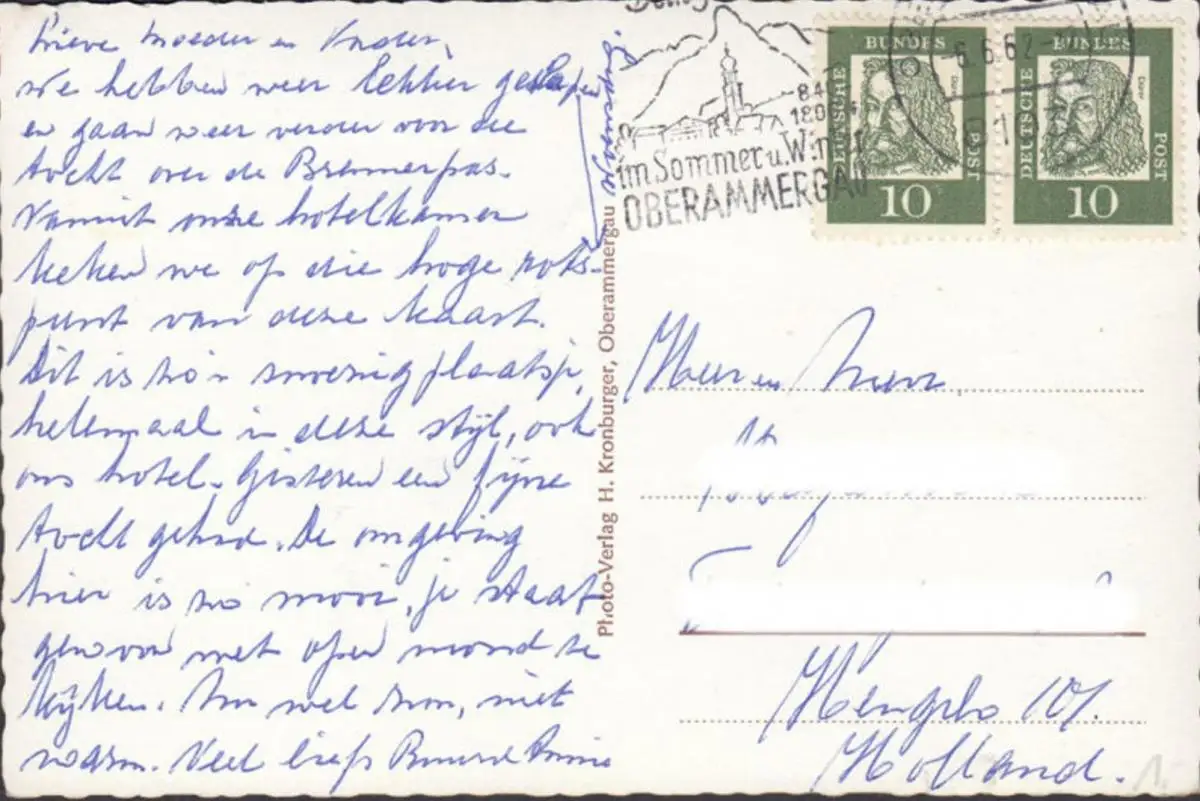 Lieve Moeder en Vader,
We hebben weer lekker geslapen
en gaan weer verder voor de
tocht over de Brennerpas.
Vanuit onze hotelkamer
keken we op die hoge rots-
punt van deze kaart.
Dit is zo'n snoezig plaatsje,
helemaal in deze stijl, ook
ons hotel. Gisteren een fijne
tocht gehad. De omgeving
hier is zo mooi, je staat
gewoon met open mond te
kijken. Nu wel zon, niet
warm. Veel liefs
Woensdag
Photo-Verlag H. Kronburger, Oberammergau
84
180
im Sommer u. Winter
OBERAMMERGAU
-6.6.62
DEUTSCHE BUNDESPOST
10
DEUTSCHE BUNDESPOST
10
Heer en Mevr
Hengelo (O).
Holland.